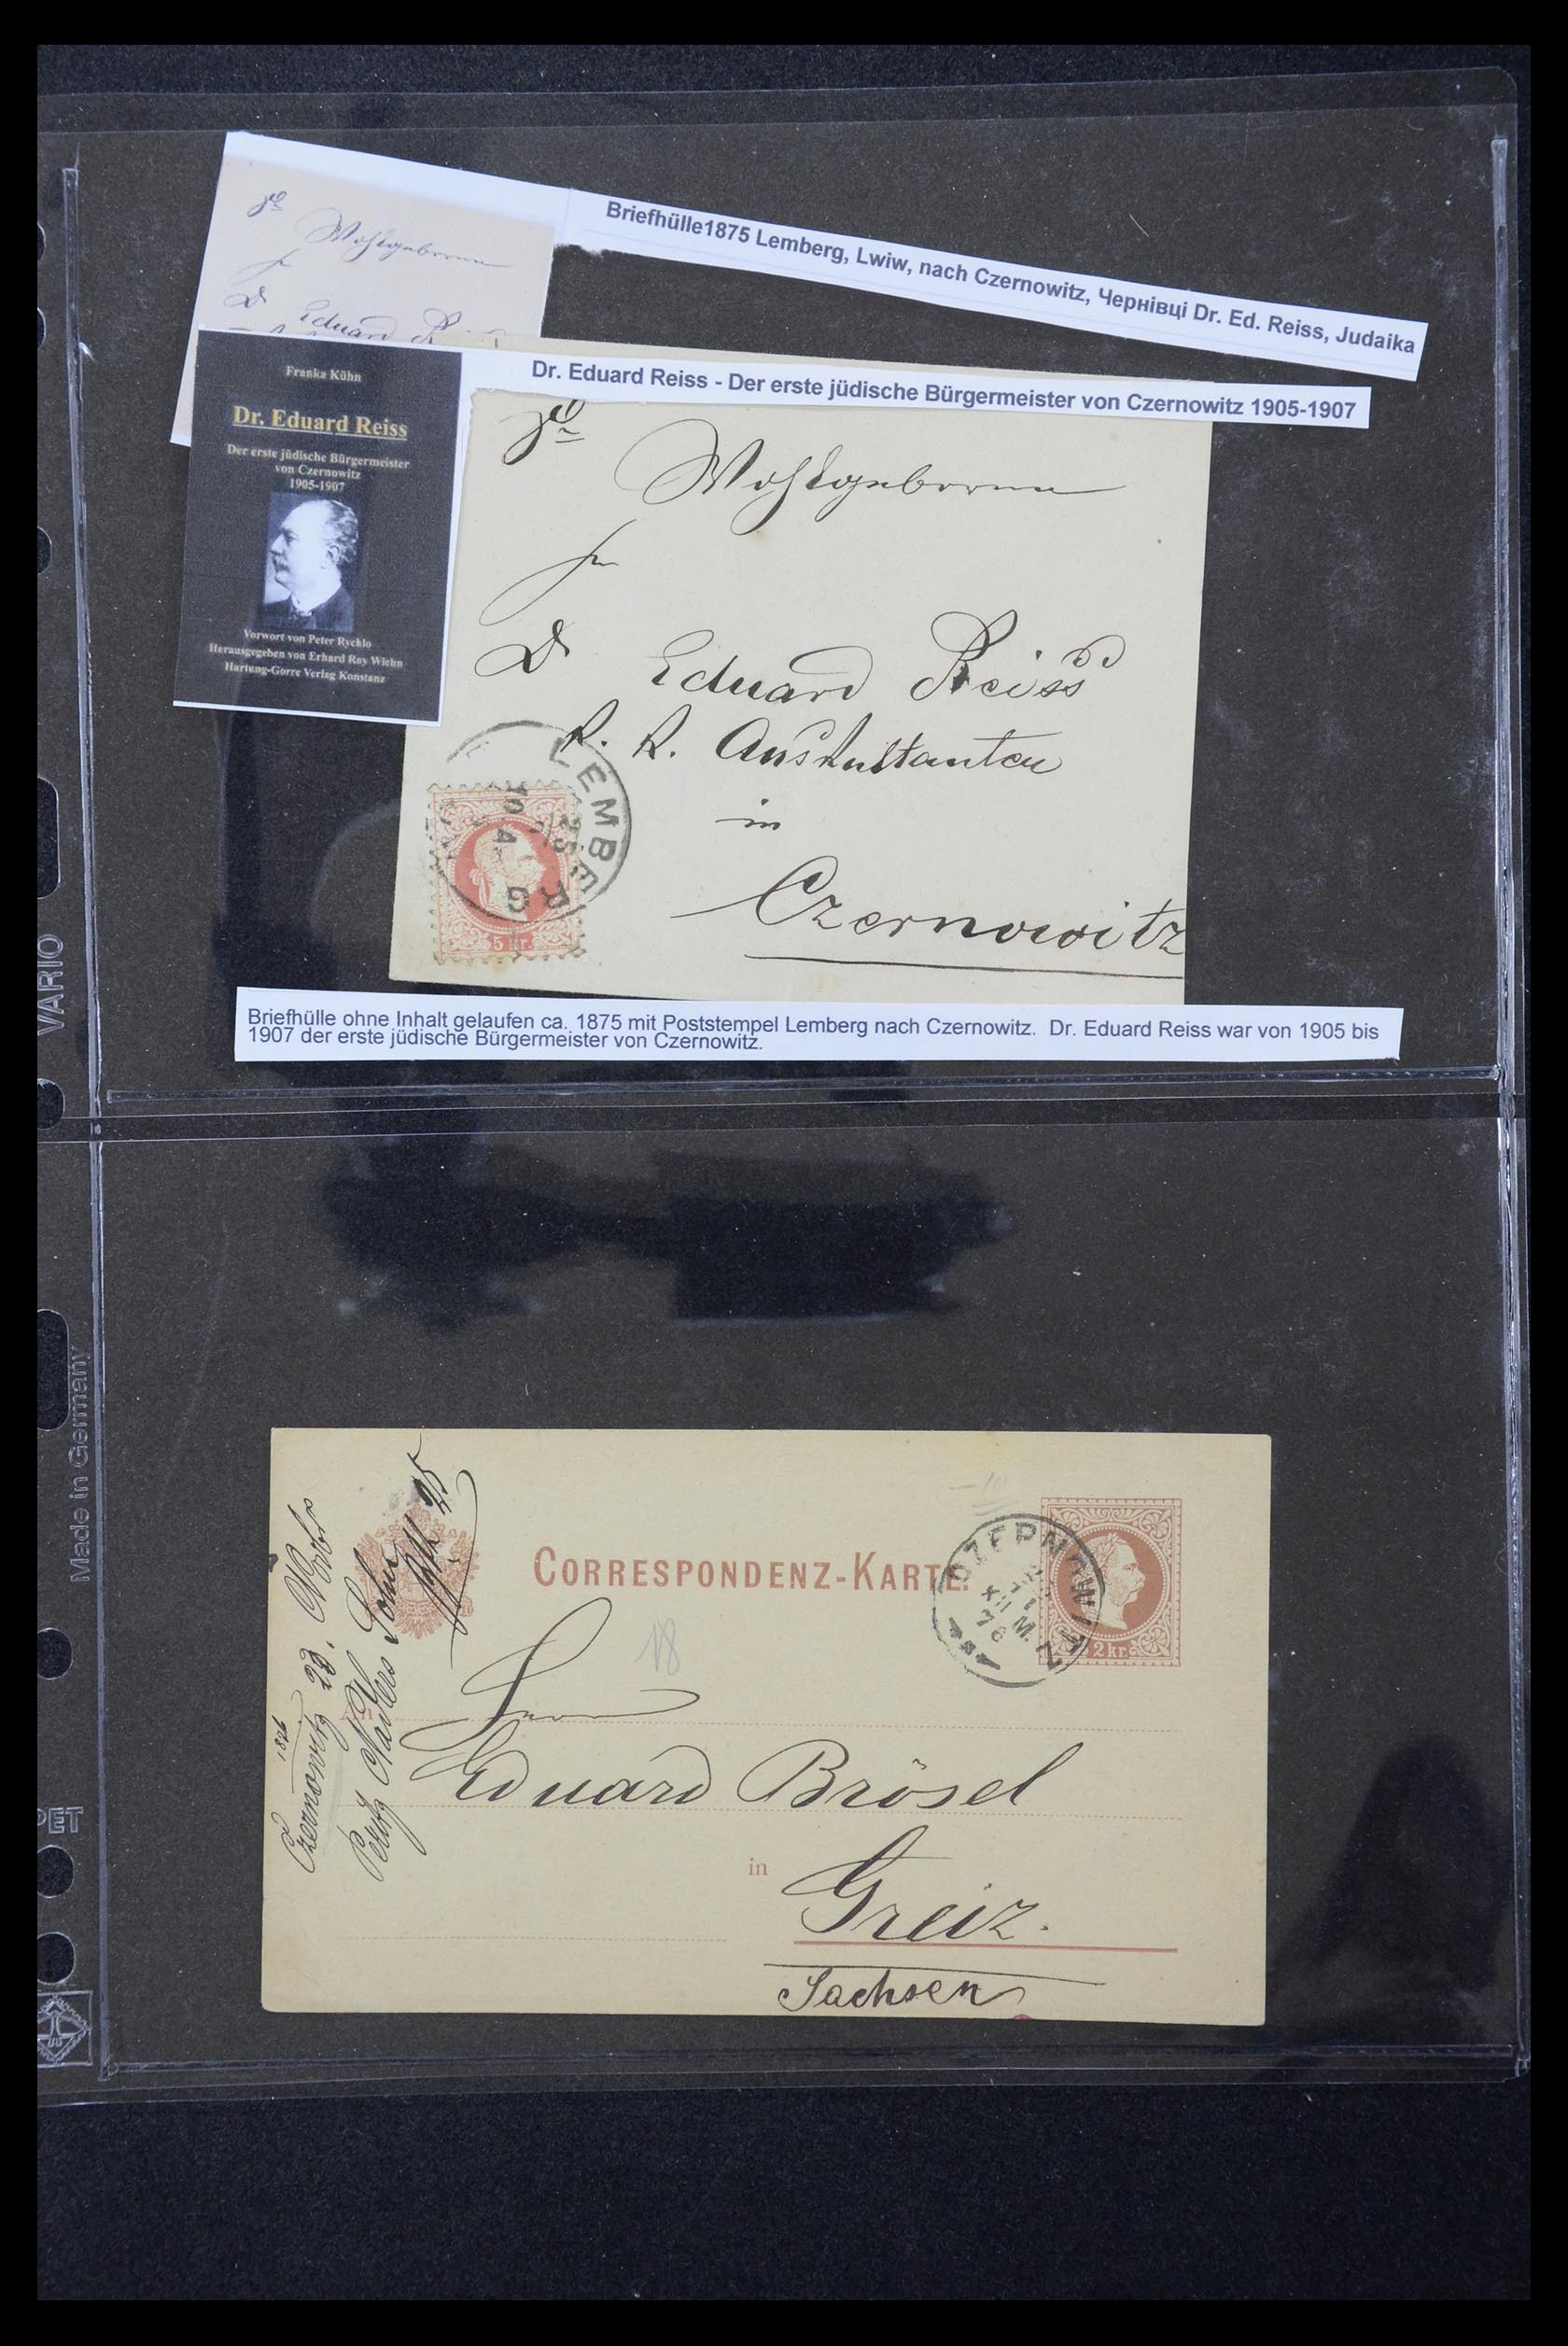 Briefhülle1875 Lemberg, Lwiw, nach Czernowitz, Чернівці Dr. Ed. Reiss, Judaika
Wohlgeboren
Dr
Eduard
Dr. Eduard Reiss - Der erste jüdische Bürgermeister von Czernowitz 1905-1907
Franka Kühn
Dr. Eduard Reiss
Der erste jüdische Bürgermeister
von Czernowitz
1905-1907
Vorwort von Peter Rychlo
Herausgegeben von Erhard Roy Wiehn
Hartung-Gorre Verlag Konstanz
Wohlgeboren
Dr Eduard Reiss
k. k. Auskultanten
in
Czernowitz
LEMBERG
5 kr.
Briefhülle ohne Inhalt gelaufen ca. 1875 mit Poststempel Lemberg nach Czernowitz. Dr. Eduard Reiss war von 1905 bis
1907 der erste jüdische Bürgermeister von Czernowitz.
VARIO
Made in Germany
PET
CORRESPONDENZ-KARTE.
CZERNOWITZ
XII
76
2 kr.
18
Herrn
Eduard Brösel
in Greiz.
Sachsen
1876
Czernowitz 23.
Sohn